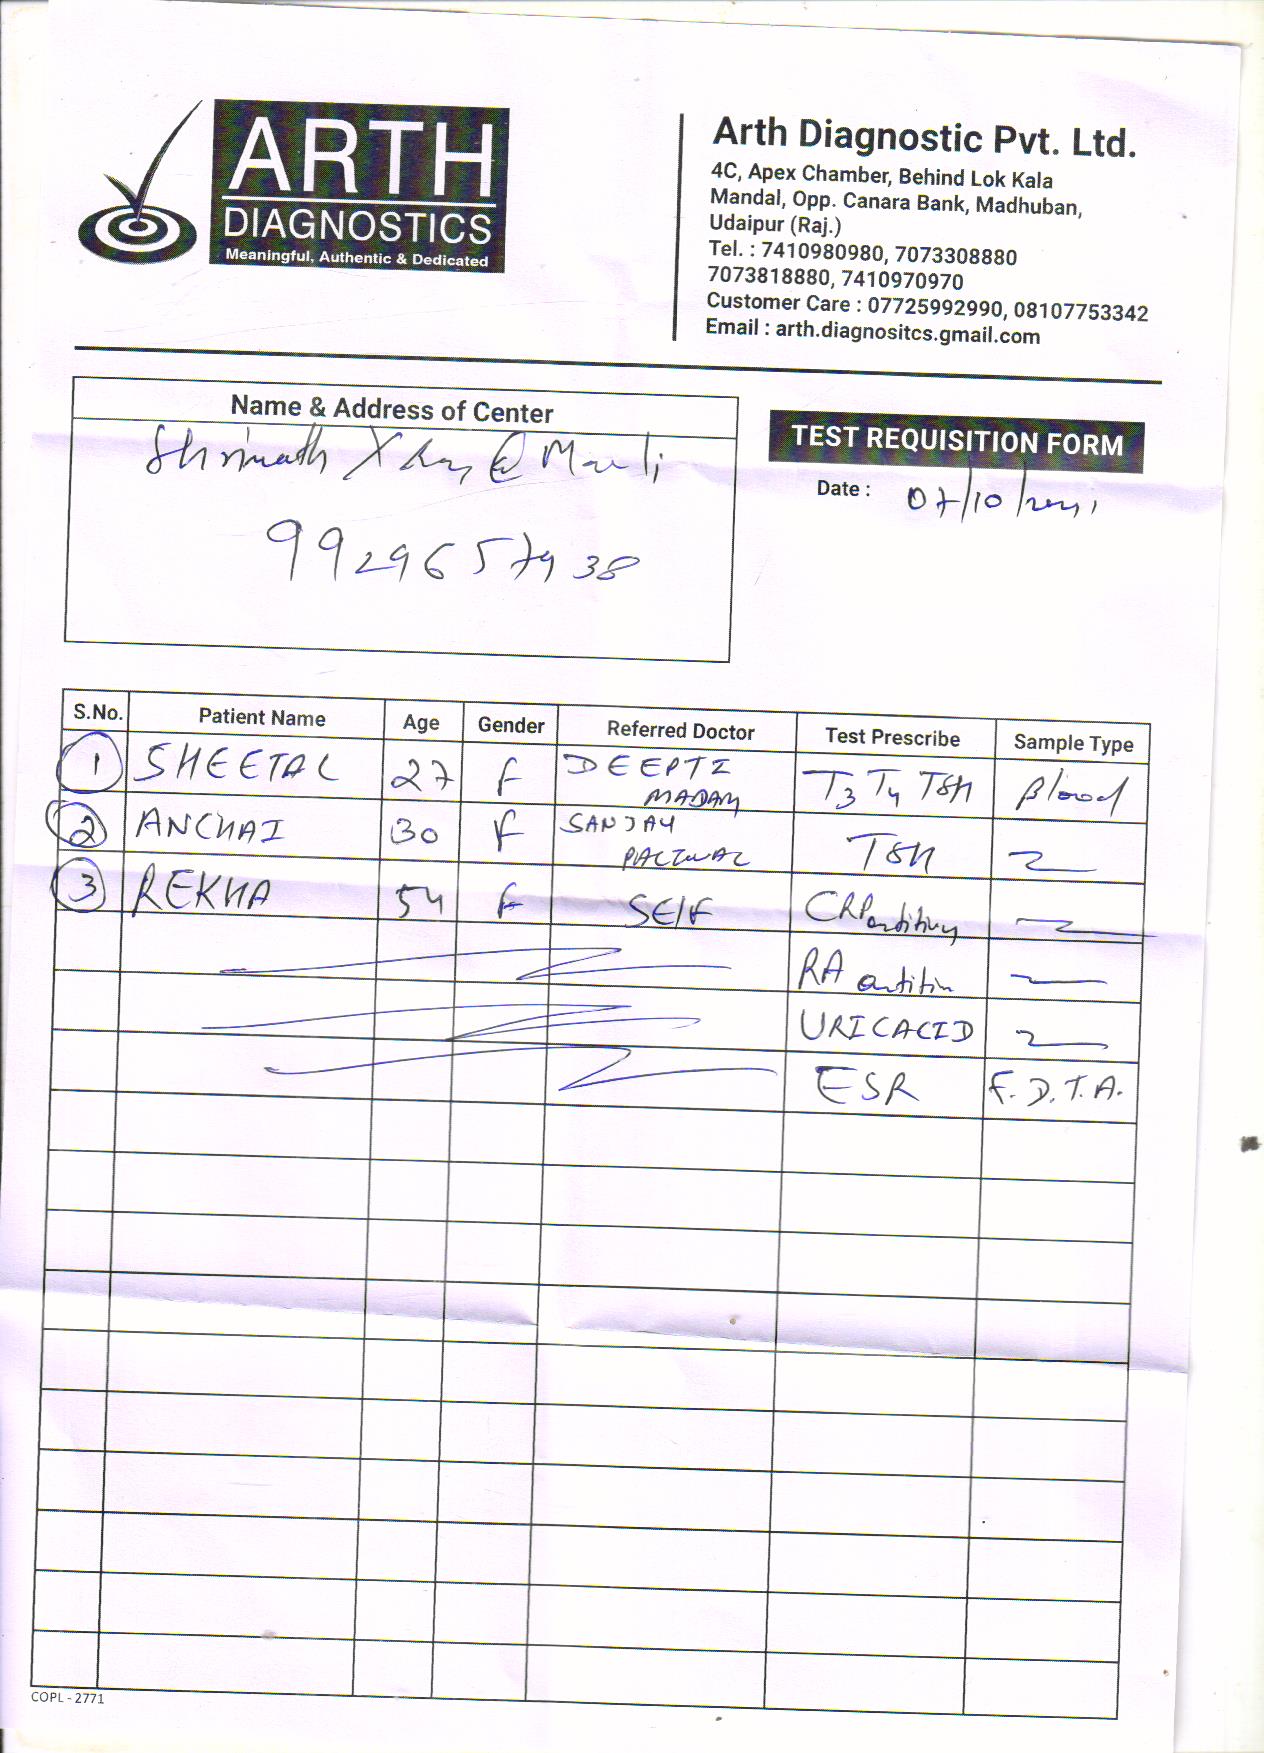 ARTH
DIAGNOSTICS
Meaningful, Authentic & Dedicated
Arth Diagnostic Pvt. Ltd.
4C, Apex Chamber, Behind Lok Kala
Mandal, Opp. Canara Bank, Madhuban,
Udaipur (Raj.)
Tel. : 7410980980, 7073308880
7073818880, 7410970970
Customer Care : 07725992990, 08107753342
Email : arth.diagnositcs.gmail.com
Name & Address of Center
Shrinath X Ray @ Mavli
9929657938
TEST REQUISITION FORM
Date : 07/10/2021
S.No. Patient Name Age Gender Referred Doctor Test Prescribe Sample Type
1 SHEETAL 27 F DEEPTI MADAM T3 T4 TSH Blood
2 ANCHAI 30 F SANJAY PALIWAL TSH
3 REKHA 54 F SELF CRP
RA
URIC ACID
ESR E.D.T.A.
COPL - 2771